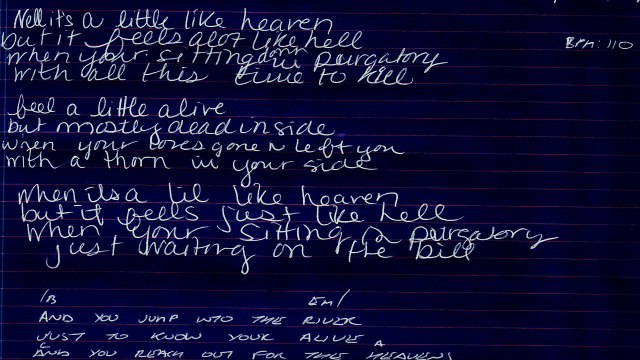 Nell it's a little like heaven
but it feels alot like hell
BPM: 110
when your sitting down in purgatory
with all this time to kill
feel a little alive
but mostly dead inside
when your loves gone n left you
with a thorn in your side
when its a lil like heaven
but it feels just like hell
when your sitting n purgatory
just waiting on the bill
/B EM/
AND YOU JUMP INTO THE RIVER
JUST TO KNOW YOUR ALIVE
C A
AND YOU REACH OUT FOR THE HEAVENS